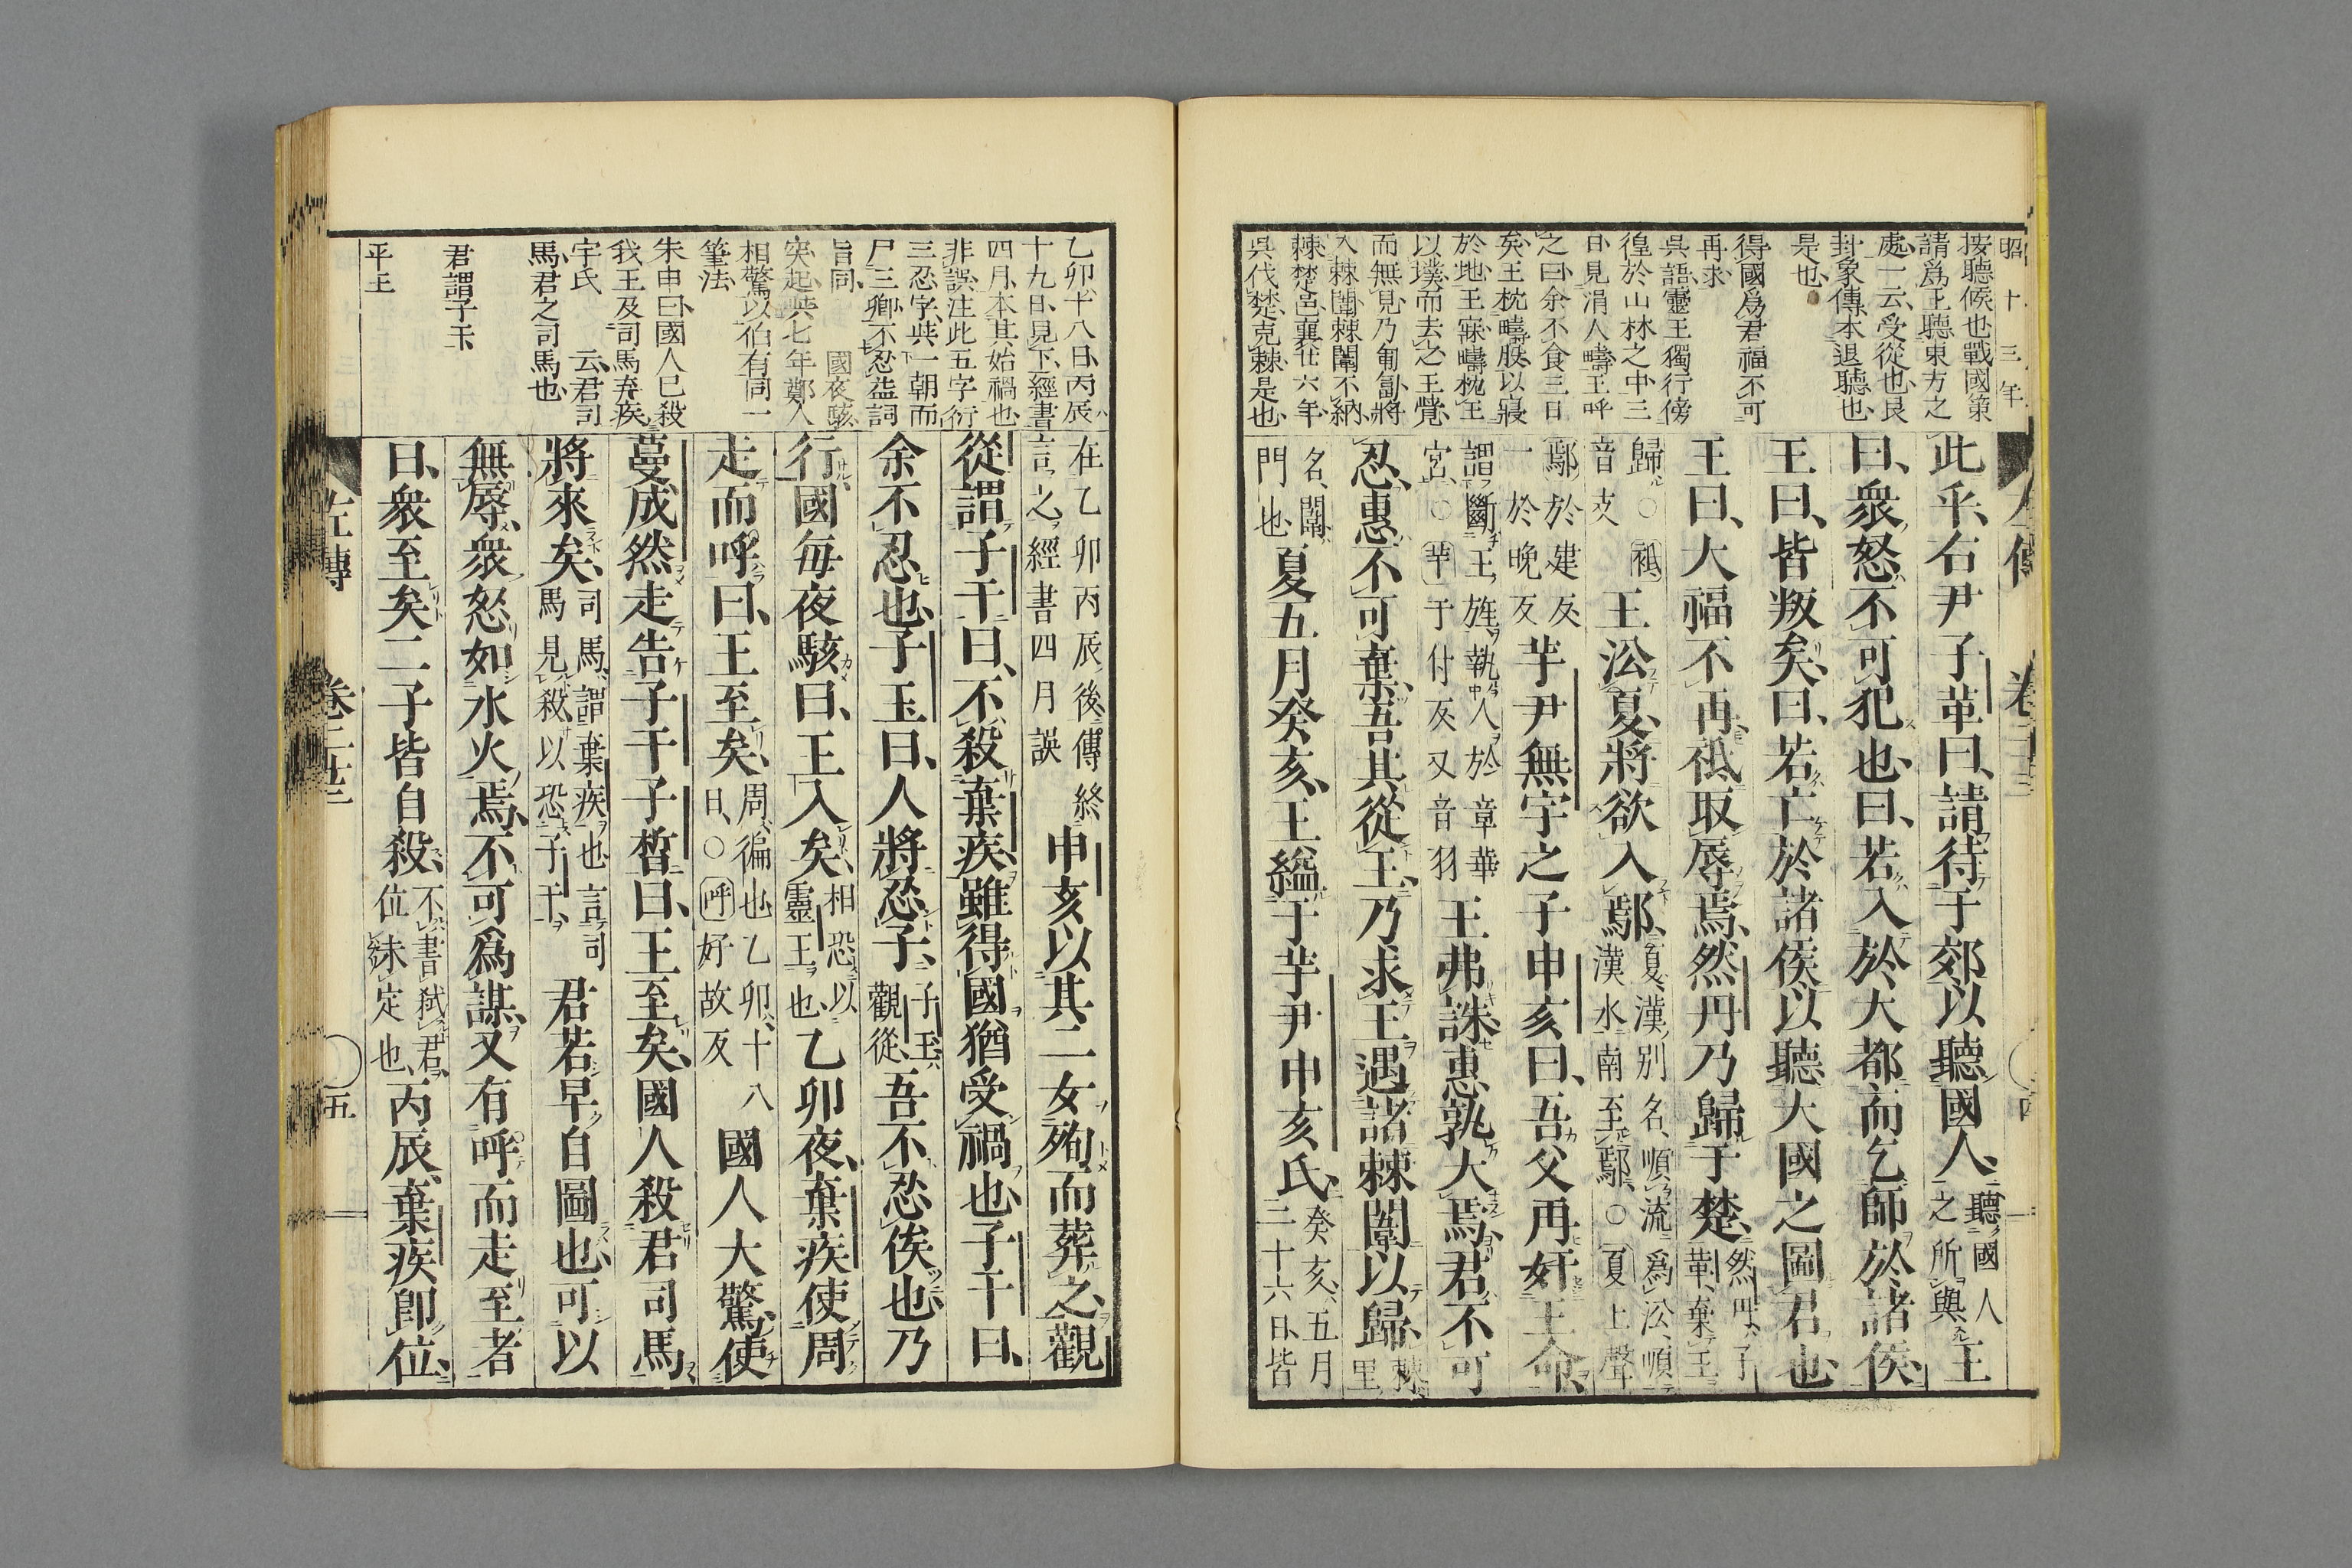 昭十三年
按聽候也戰國策
請爲王聽東方之
處一云受從也良
封象傳本退聽也
是也
得國爲君福不可
再求
吳語靈王獨行傍
徨於山林之中三
日見涓人疇王呼
之曰余不食三日
矣王枕疇股以寢
於地王寐疇枕王
以墣而去之王覺
而無見乃匍匐將
入棘闈棘闈不納
棘楚邑襄廿六年
吳伐楚克棘是也
此乎右尹子革曰請待于郊以聽國人聽國人之所與王
曰衆怒不可犯也曰若入於大都而乞師於諸侯
王曰皆叛矣曰若亡於諸侯以聽大國之圖君也
王曰大福不再祗取辱焉然丹乃歸于楚然丹子革棄王
歸○祗音支王沿夏將欲入鄢夏漢別名順流爲沿順漢水南至鄢○夏上聲
鄢於建反一於晚反芋尹無宇之子申亥曰吾父再奸王命
謂斷王旌執人於章華宮○芋于付反又音羽王弗誅惠孰大焉君不可
忍惠不可棄吾其從王乃求王遇諸棘闈以歸棘里
名闈門也夏五月癸亥王縊于芋尹申亥氏癸亥五月二十六日皆
乙卯十八日丙辰
十九日見下經書
四月本其始禍也
非誤注此五字衍
三忍字與一朝而
尸三卿不忍益詞
旨同　國夜駭
突起與七年鄭人
相驚以伯有同一
筆法
朱申曰國人巳殺
我王及司馬弃疾
宇氏　云君司
馬君之司馬也
君謂子干
平王
在乙卯丙辰後傳終言之經書四月誤申亥以其二女殉而葬之觀
從謂子干曰不殺棄疾雖得國猶受禍也子干曰
余不忍也子玉曰人將忍子子玉觀從吾不忍俟也乃
行國每夜駭曰王入矣相恐以靈王也乙卯夜棄疾使周
走而呼曰王至矣周徧也乙卯十八日○呼好故反國人大驚使
蔓成然走告子干子晳曰王至矣國人殺君司馬
將來矣司馬謂棄疾也言司馬見殺以恐子干君若早自圖也可以
無辱衆怒如水火焉不可爲謀又有呼而走至者
曰衆至矣二子皆自殺不書弑君位未定也丙辰棄疾卽位
左傳　卷二十三　五